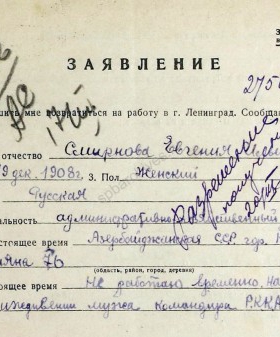 ЗАЯВЛЕНИЕ
275
шить мне возвратиться на работу в г. Ленинград. Сообща
отчество Смирнова Евгения
9 дек. 1908 г. 3. Пол Женский
Русская
альность административно
стоящее время Азербайджанская ССР, гор.
76
(область, район, город, деревня)
оящее время Не работаю временно, на
иждивении мужа командира РККА
Разрешение
получ